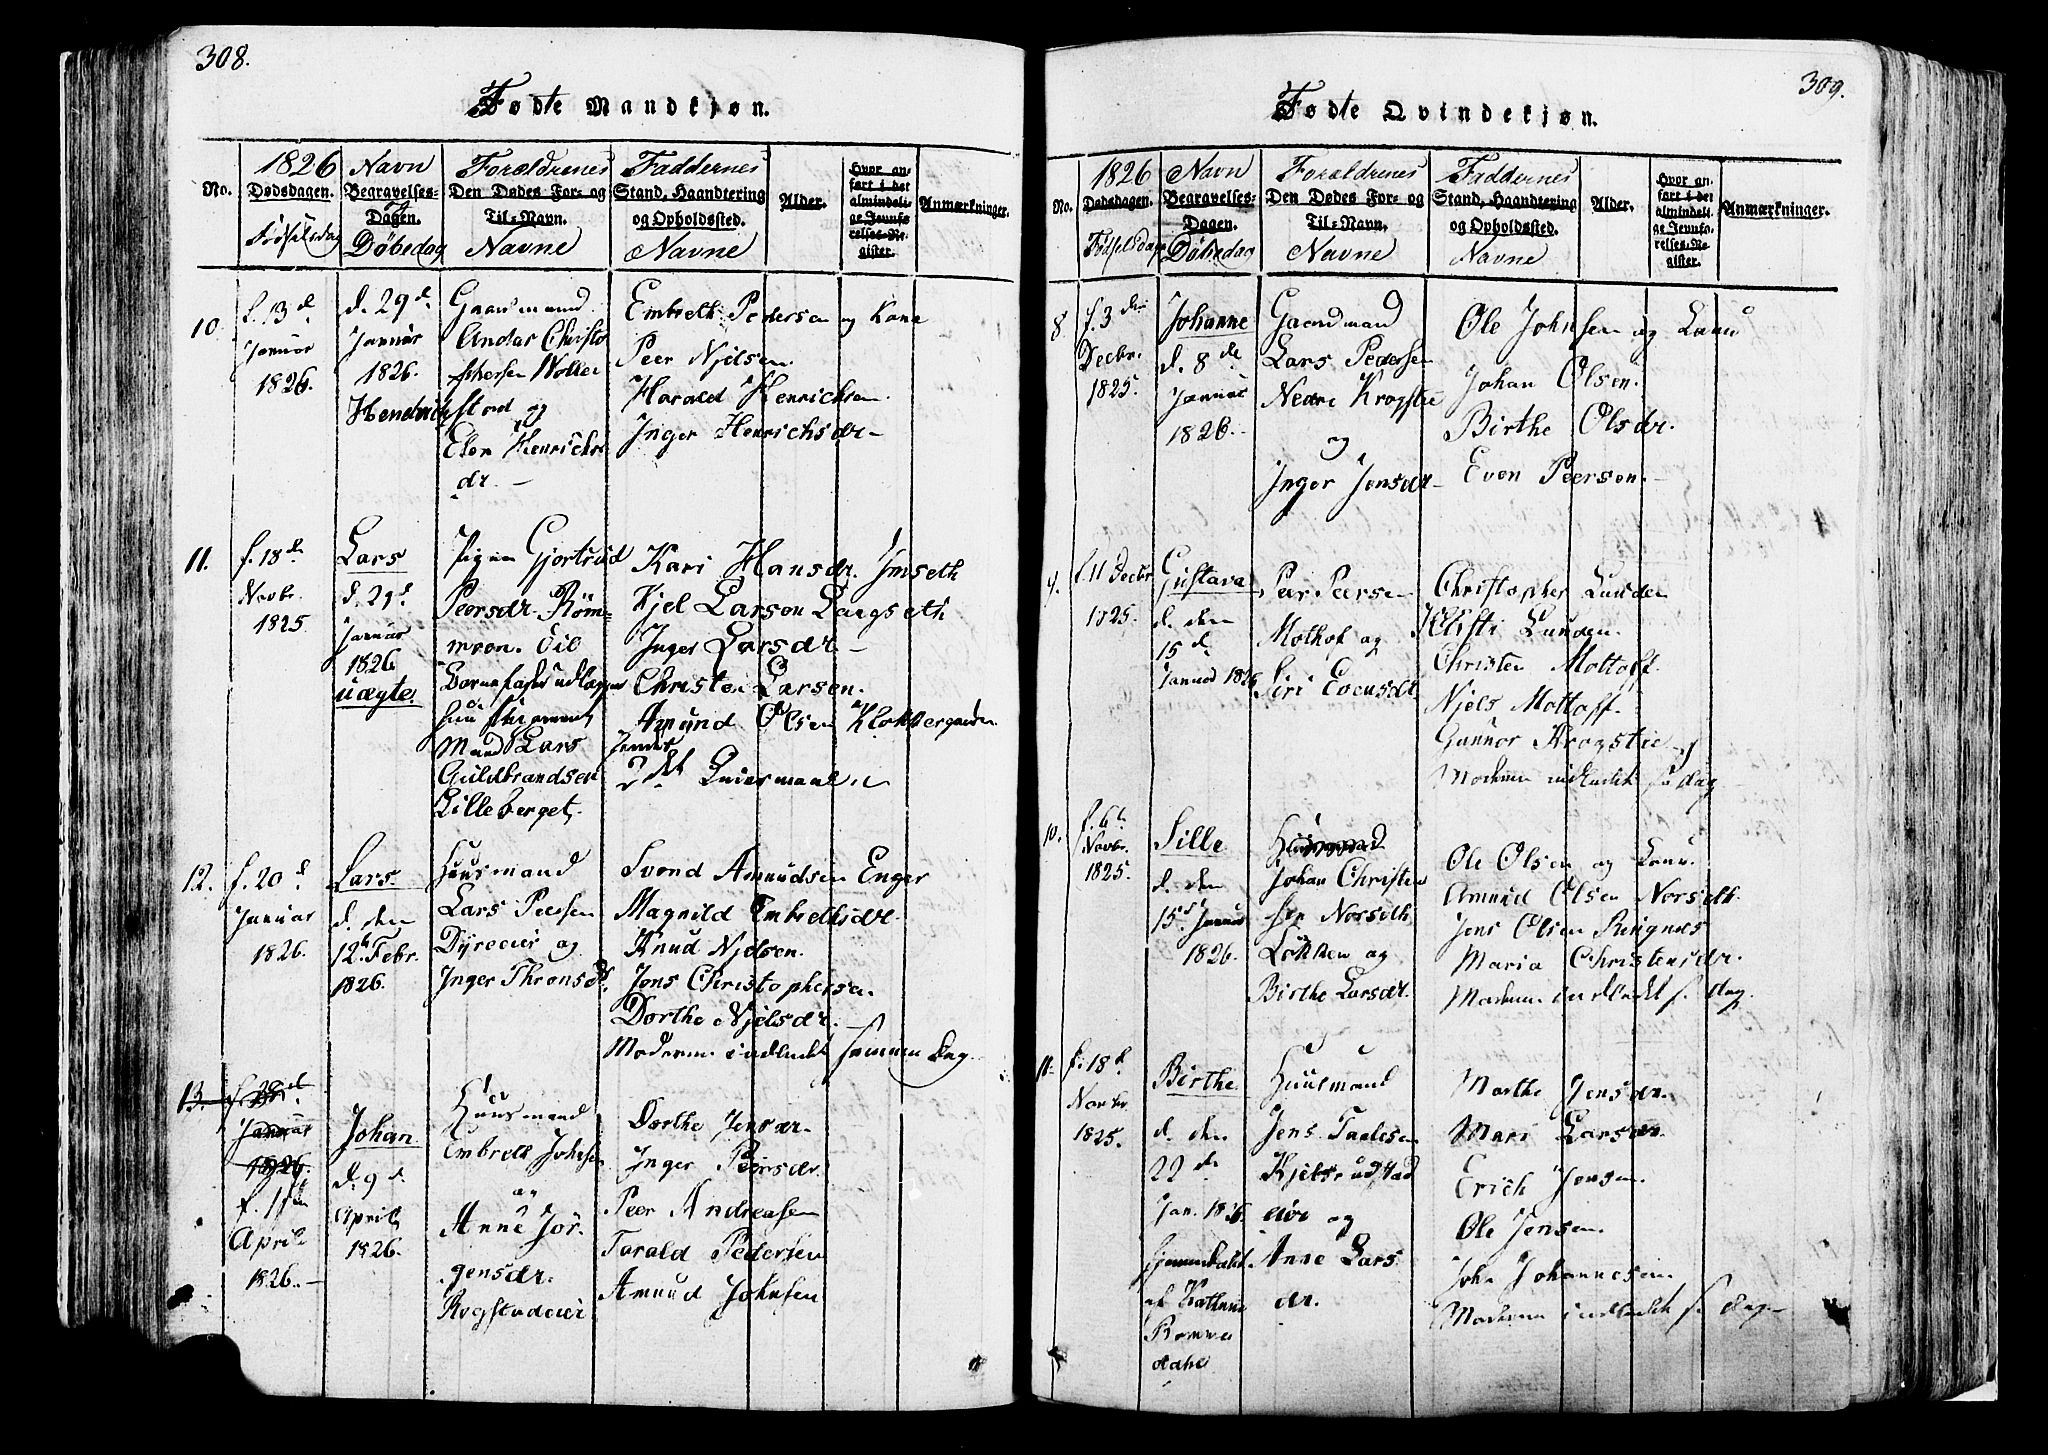 308.
Fødte Mandkjøn.
No.
1826
Dødsdagen.
Fødselsdag
Navn
Begravelses-
Dagen.
Døbedag
Forældrenes
Den Dødes For- og
Til-Navn.
Navne
Faddernes
Stand, Haandtering
og Opholdssted.
Navne
Alder.
Hvor an-
ført i det
almindeli-
ge Jevnfø-
relses-Re-
gister.
Anmærkninger.
10
f. 13 d
Januar
1826.
d. 29 d.
Januar
1826.
Hendrich
Gaardmand
Andas Christo
phersen
og
Elen Henrichs
dr. -
Embreth Pedersen og Kone
Peer Njelsen.
Harald Henrichsen.
Inger Henrichsdr -
11.
f. 18 d
Novbr.
1825
Lars
d. 29 d.
Januar
1826
uægte.
Pigen Gjortrud
Peersdr. Röm-
moen. Til
Barnefader udlægger
hun
Mand Lars
Guldbrandsen
Lilleberget.
Kari Hansdr. Imseth
Kjel Larsen Langseth
Inger Larsdr -
Christen Larsen.
Amund Olsen Klokkergaarden
2det Leiermaal
12.
f. 20 d.
Januar
1826.
Lars.
d. den
12 Febr.
1826.
Huusmand
Lars Peersen
Dyreeier og
Inger Thronsdr.
Svend Amundsen Enger
Magnild Embrethsdr.
Knud Njelsen.
Jens Christophersen.
Dorthe Njelsdr. -
Moderen indledt samme Dag.
13.
Januar
1826.
f. 1ste
April
1826. -
Johan
d. 9 d.
April
1826.
Huusmand
Embreth Johnsen
og
Anne Jör-
gensdr.
Rogstadeier
Dorthe Jensdr -
Inger Peersdr.
Peer Andreasen
Tarald Pedersen
Amund Johnsen
309.
Fødte Qvindekjøn.
No.
1826
Dødsdagen.
Fødselsdag
Navn
Begravelses-
Dagen.
Døbedag
Forældrenes
Den Dødes For- og
Til-Navn.
Navne
Faddernes
Stand, Haandtering
og Opholdssted.
Navne
Alder.
Hvor an-
ført i det
almindeli-
ge Jevnfø-
relses-Re-
gister.
Anmærkninger.
8
f. 3 den
Decbr.
1825.
Johanne
d. 8 de
Januar
1826. -
Gaardmand
Lars Pedersen
Nedre Krogstie
og
Inger Jensdr -
Ole Johnsen og Kone
Johan Olsen.
Birthe Olsdr.
Even Peersen. -
9.
f. 11 Decbr
1825.
Gustava
d. den
15 d.
Januar 1826
Peer Peersen
Mothof og
Siri Evensdr
Christopher Lunden
Lunden.
Christen Mottoff.
Njels Mottoff.
Gunnor Krogstie
Moderen indledt s. dag
10.
f. 6
Novbr.
1825.
Sille
d. den
15 d Januar
1826.
Huusmand
Johan Christen
sen Norseth
Lökken og
Birthe Larsdr.
Ole Olsen og Kone.
Amund Olsen Norseth.
Jens Olsen Ringnes
Maria Christensdr.
Moderen indledt s. dag.
11.
f. 18 d
Novbr
1825.
Birthe
d. den
22 de
Jan. 1826.
hjemmedøbt
af
dahl
Huusmand
Jens Taalesen
Kjelsrudstad
eier og
Anne Lars
dr.
Marthe Jensdr.
Mari Larsdr.
Erich Jensen.
Ole Jensen.
John Johannesen
Moderen indledt s. dag -